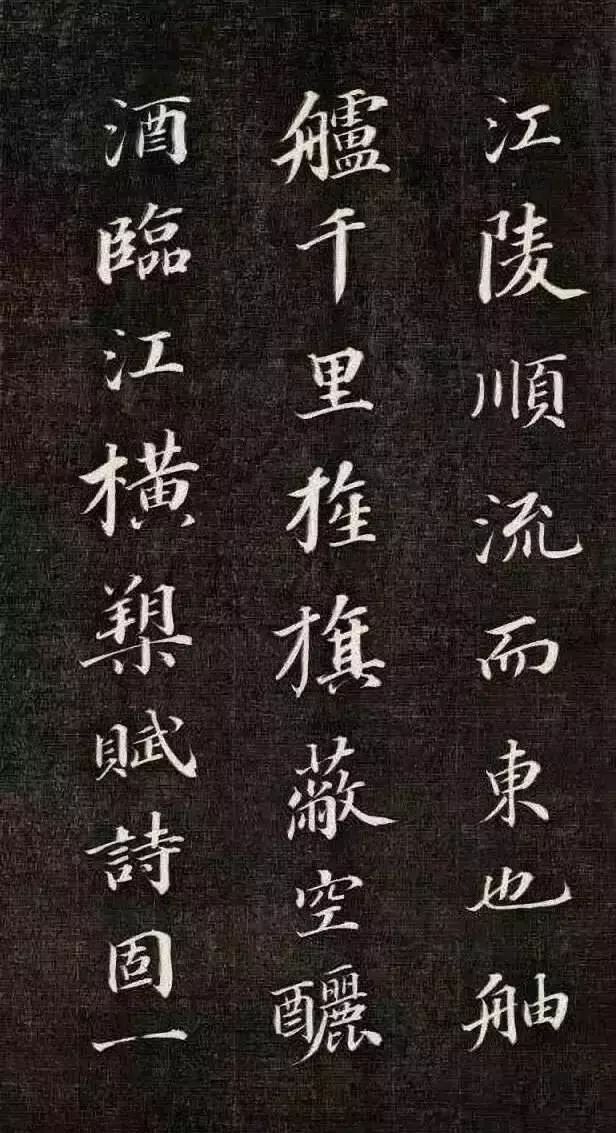 江陵順流而東也舳
艫千里旌旗蔽空釃
酒臨江橫槊賦詩固一